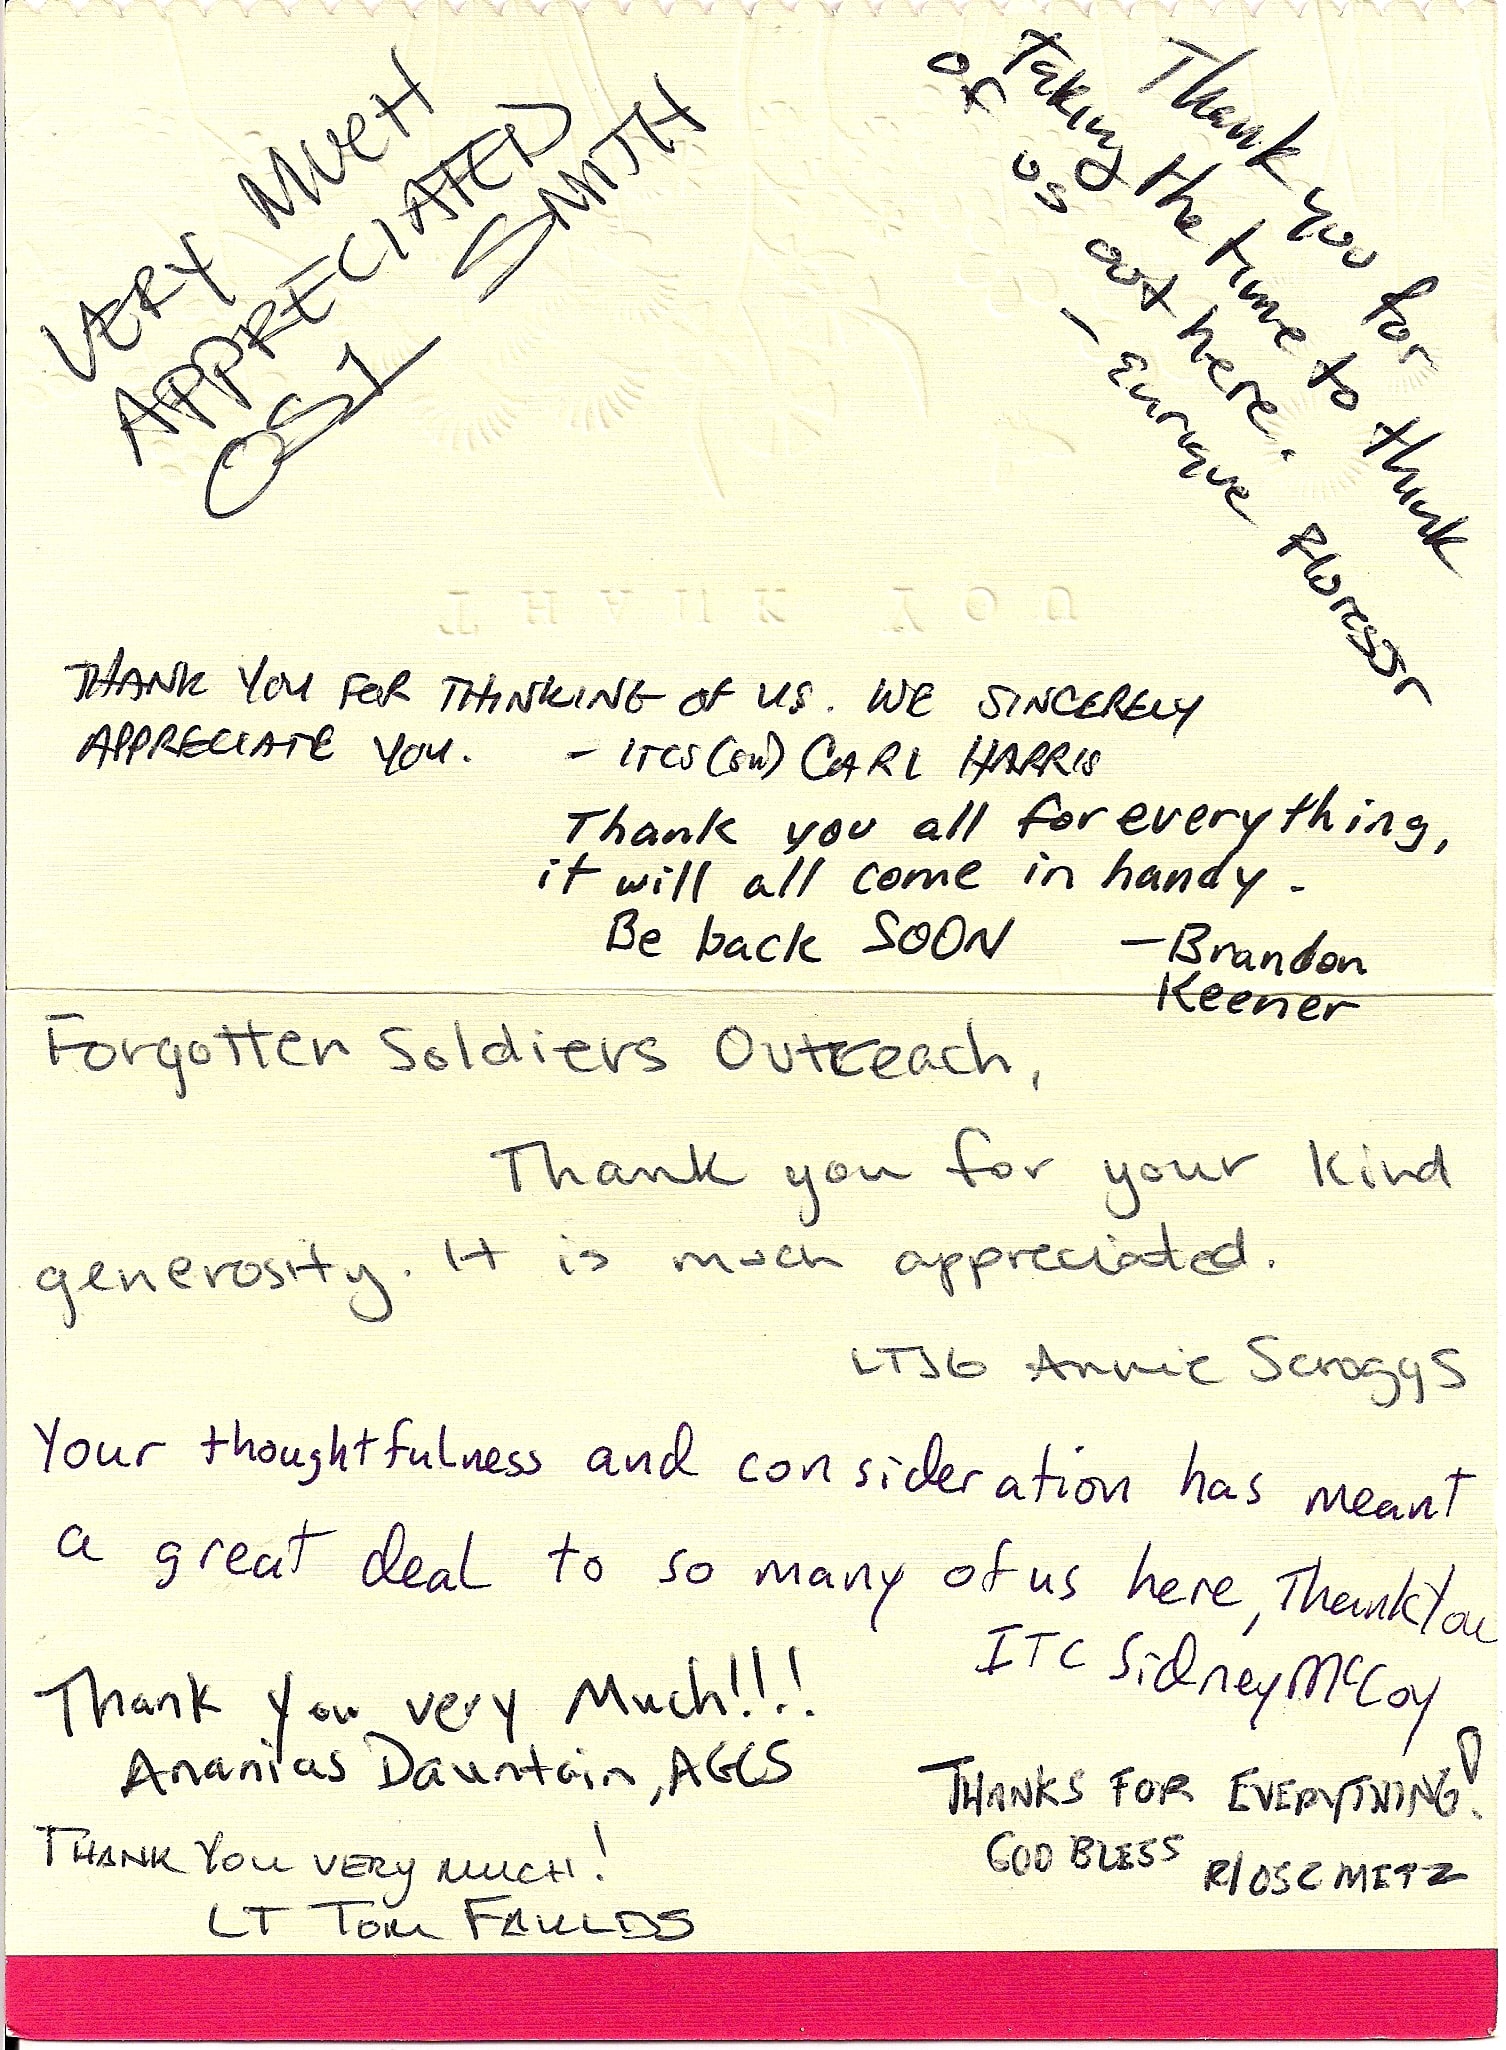 VERY MUCH
APPRECIATED
OS1 SMITH
Thank you for
taking the time to think
of us out here.
- Enrique Flores Jr
THANK YOU
THANK YOU FOR THINKING OF US. WE SINCERELY
APPRECIATE YOU. - ITCS(SW) CARL HARRIS
Thank you all for everything,
it will all come in handy.
Be back SOON - Brandon
Keener
Forgotten Soldiers Outreach,
Thank you for your kind
generosity. It is much appreciated.
LTJG Annie Scroggs
Your thoughtfulness and consideration has meant
a great deal to so many of us here, Thank You
ITC Sidney McCoy
Thank you very Much!!!
Ananias Dauntain, AGCS
THANKS FOR EVERYTHING!
GOD BLESS R/OSC METZ
THANK YOU VERY MUCH!
LT TOM FAULDS